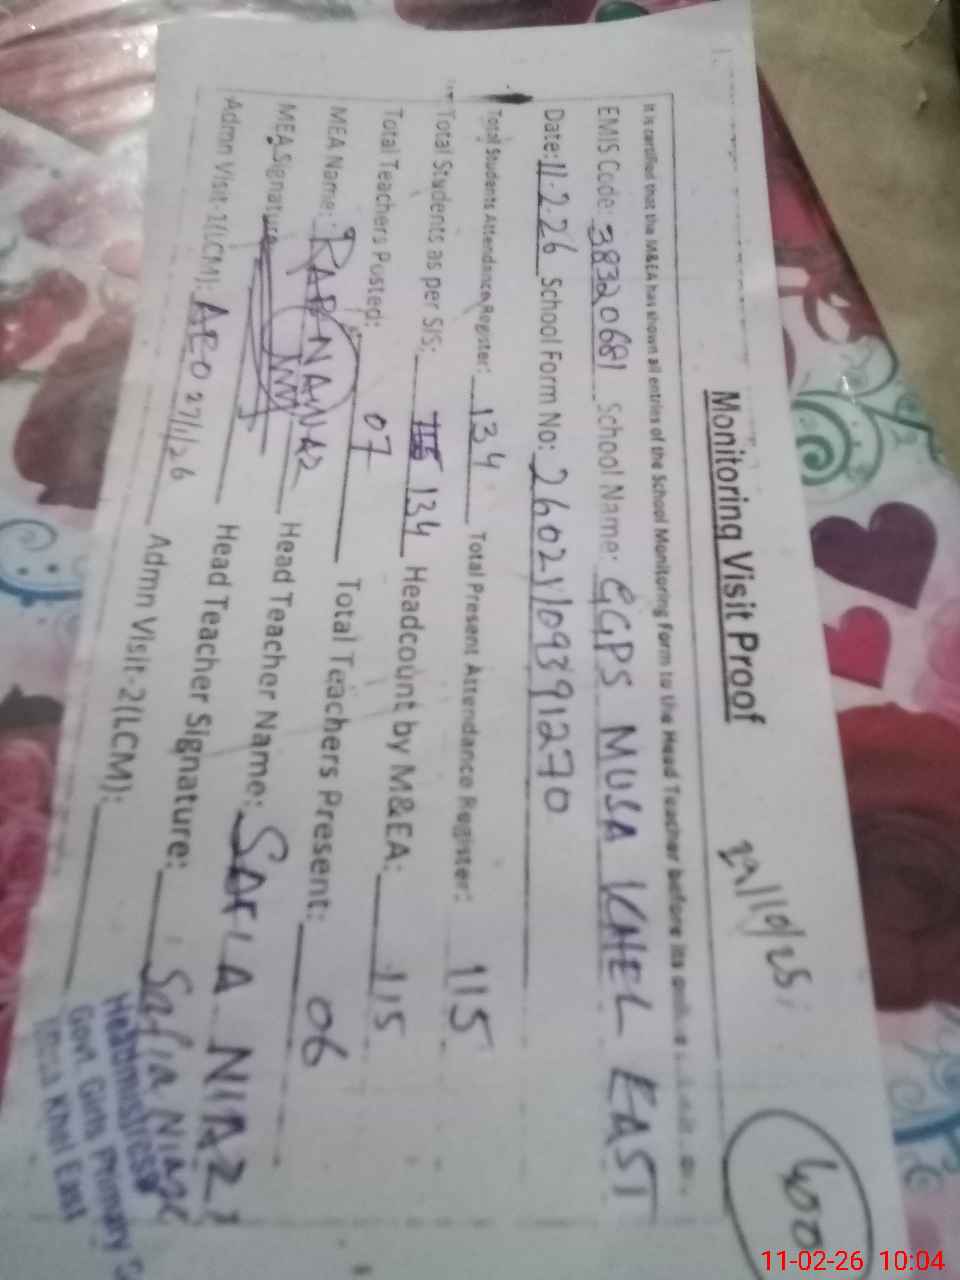 Monitoring Visit Proof
29/10/25
400
It is certified that the M&EA has shown all entries of the School Monitoring Form to the Head Teacher before its
EMIS Code: 38320681 School Name: GGPS MUSA KHEL EAST
Date: 11-2-26 School Form No: 26021109391270
Total Students Attendance Register: 134 Total Present Attendance Register: 115
Total Students as per SIS: 134 Headcount by M&EA: 115
Total Teachers Posted: 07 Total Teachers Present: 06
MEA Name: RAB NAWAZ Head Teacher Name: SAFIA NIAZI
MEA Signature: Head Teacher Signature: Safia Niazi
Admn Visit-1(LCM): AEO 27/1/26 Admn Visit-2(LCM):
Headmistress
Govt. Girls Primary
Khel East
11-02-26 10:04